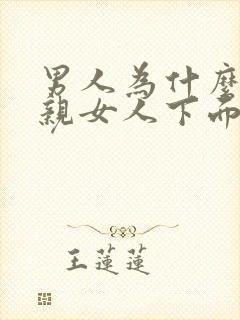 男人為什麼
親女人下而
王蓮蓮